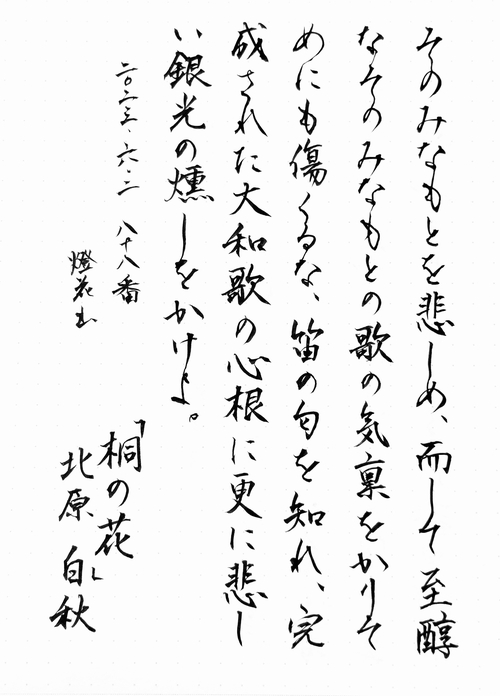 そのみなもとを悲しめ、而して至醇
なそのみなもとの歌の気稟をかりそ
めにも傷くるな、笛の匂を知れ、完
成された大和歌の心根に更に悲し
い銀光の燻しをかけよ。
二〇二三、六、二 八十八番
燈花书
「桐の花」
北原白秋